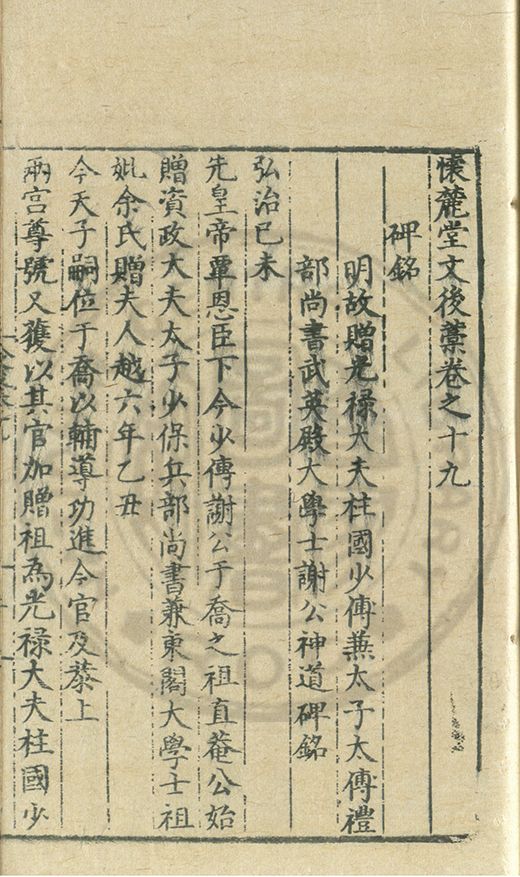 懷麓堂文後藁卷之十九
碑銘
明故贈光禄大夫柱國少傅兼太子太傅禮
部尚書武英殿大學士謝公神道碑銘
弘治己未
先皇帝覃恩臣下今少傅謝公于喬之祖直菴公始
贈資政大夫太子少保兵部尚書兼東閣大學士祖
妣余氏贈夫人越六年乙丑
今天子嗣位于喬以輔導功進今官及恭上
兩宫尊號又獲以其官加贈祖為光禄大夫柱國少